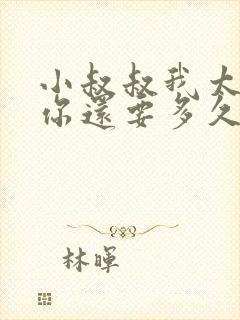 小叔叔我太
你還要多久
林暉